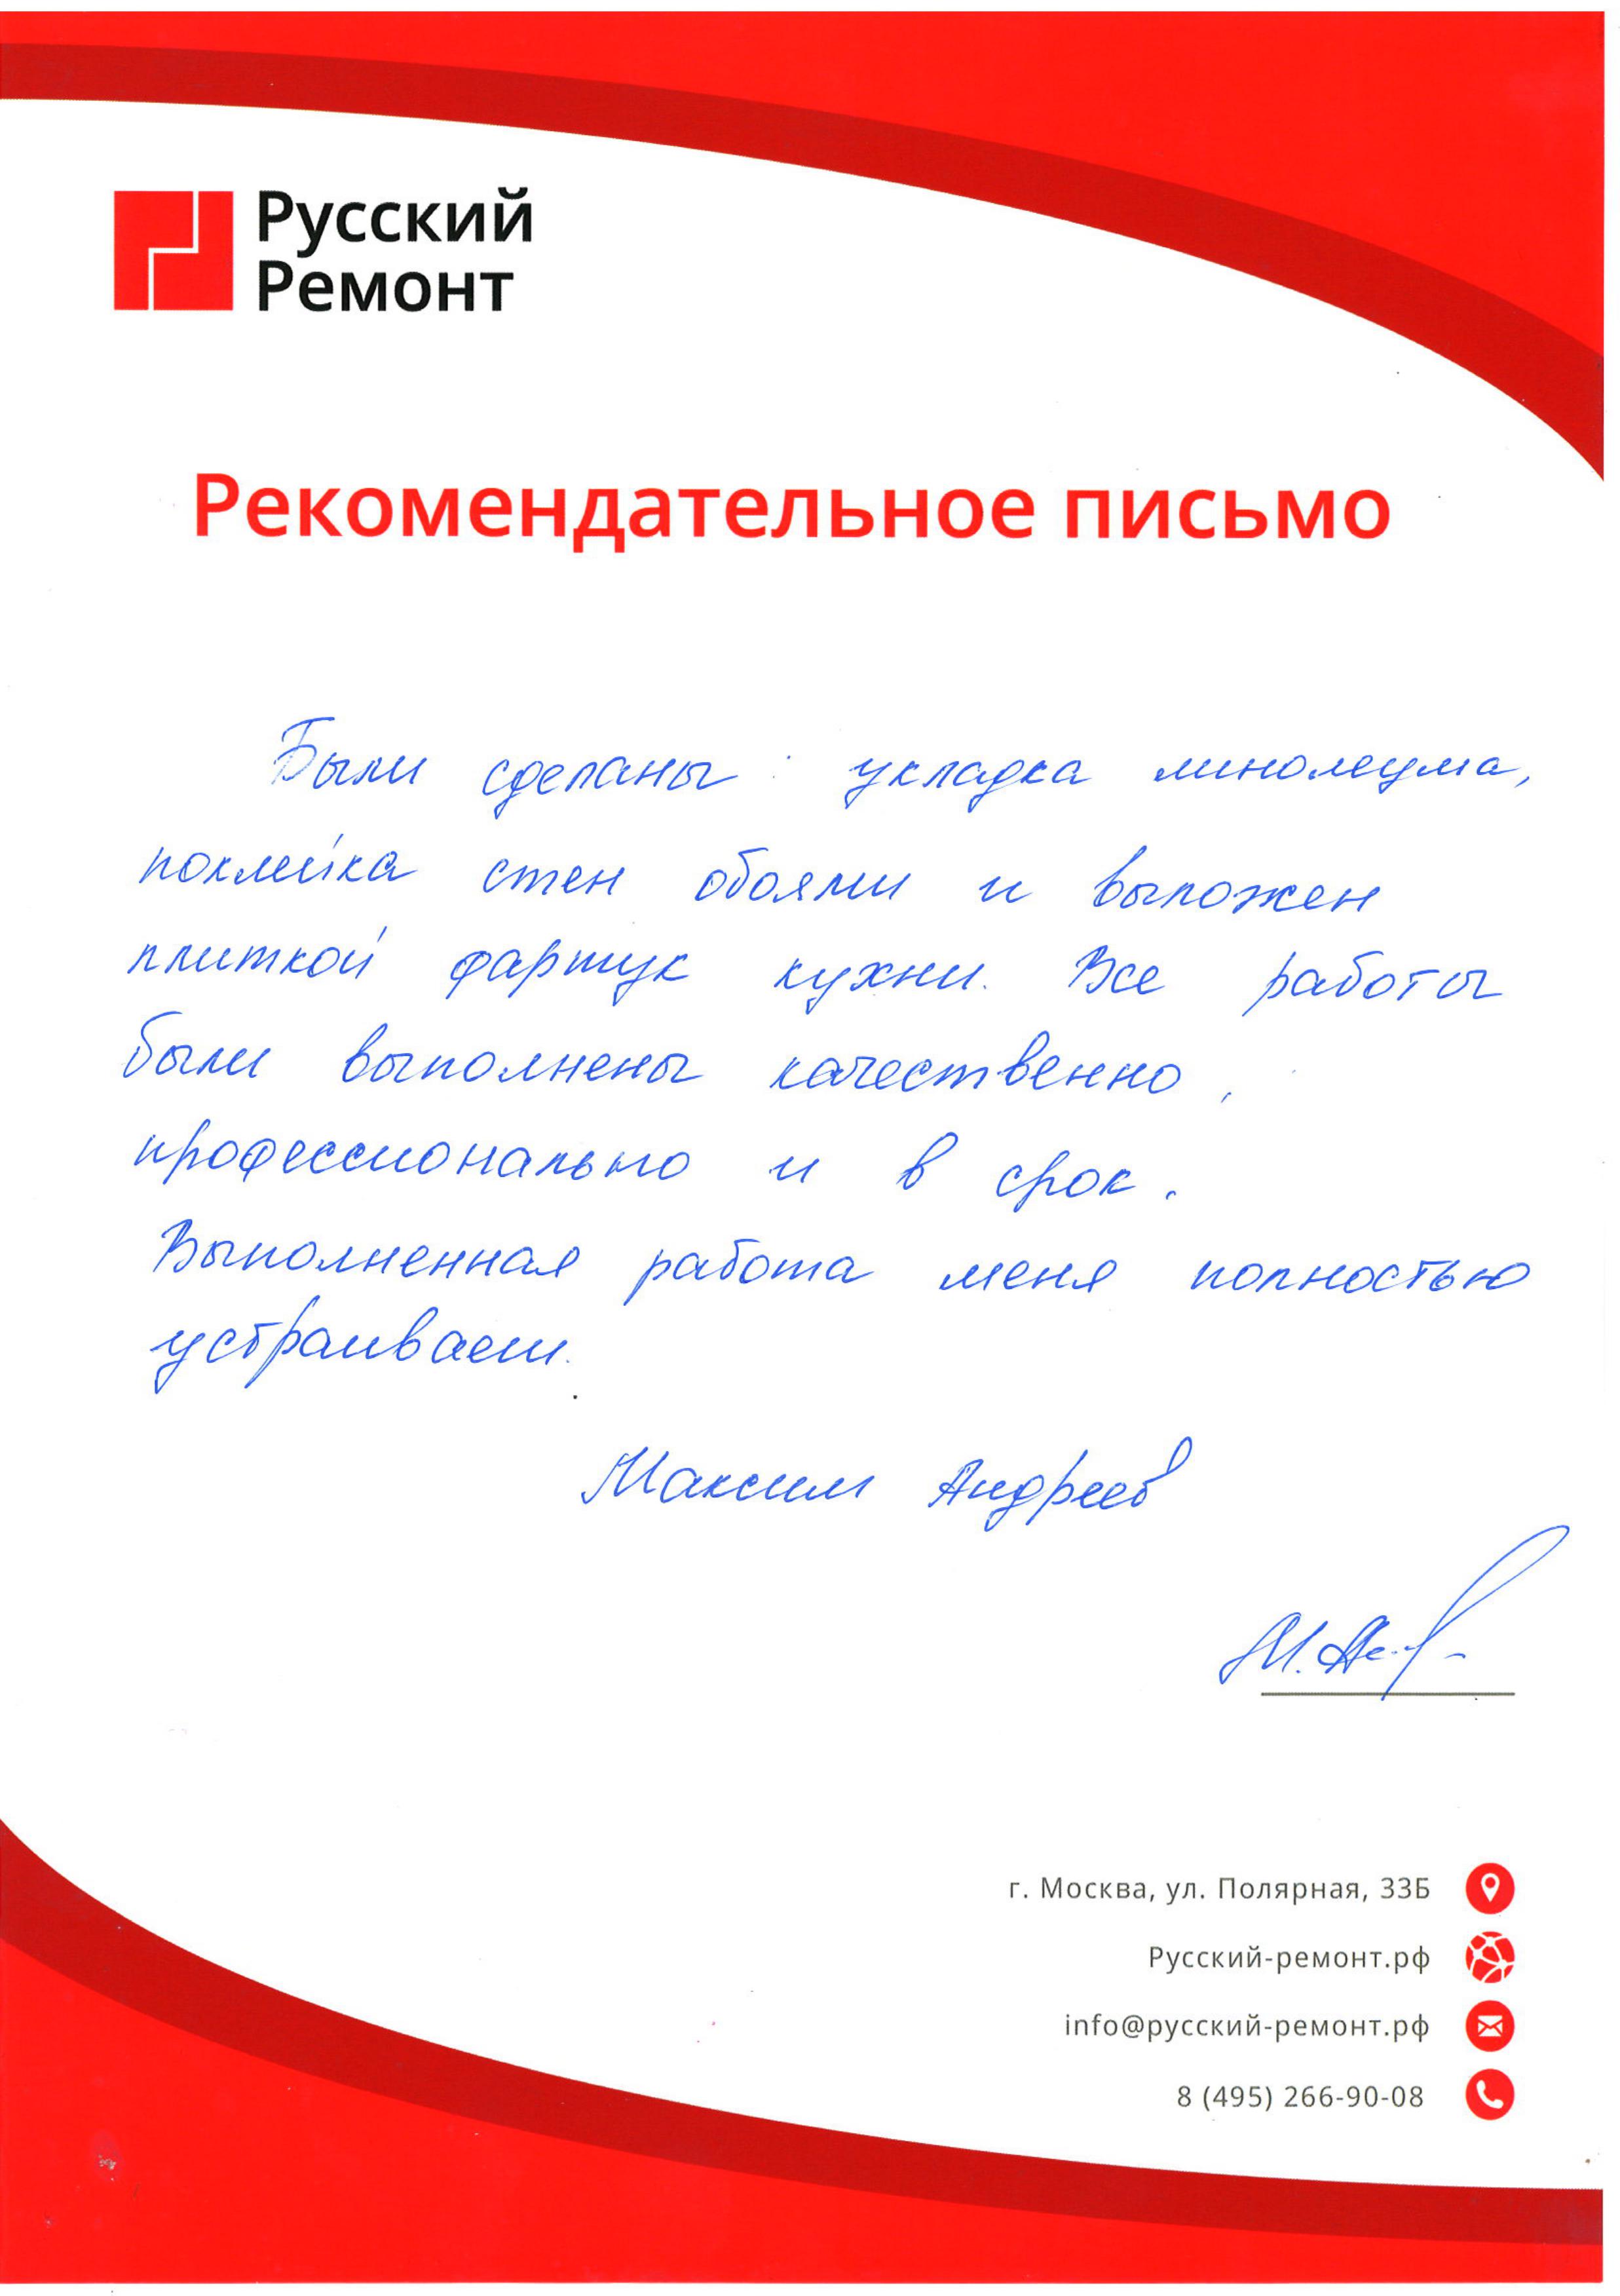 Русский
Ремонт
Рекомендательное письмо
Были сделаны: укладка линолеума,
поклейка стен обоями и выложен
плиткой фартук кухни. Все работы
были выполнены качественно,
профессионально и в срок.
Выполненная работа меня полностью
устраивает.
Максим Андреев
г. Москва, ул. Полярная, 33Б
Русский-ремонт.рф
info@русский-ремонт.рф
8 (495) 266-90-08